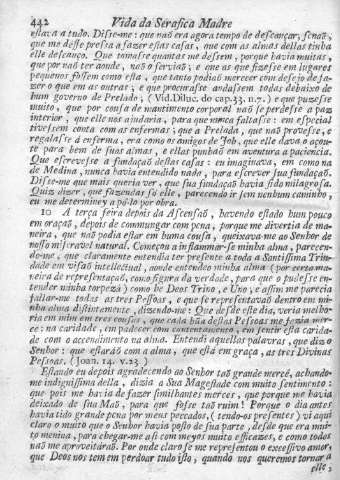 442 Vida da Serafica Madre
estava a tudo. Disse-me: que naõ era agora tempo de descançar, senaõ,
que me desse pressa a fazer estas casas, que com as almas dellas tinha
elle descanço. Que tomasse quantas me dessem, porque havia muitas,
que por naõ ter aonde, naõ o serviaõ; e que as que fizesse em lugares
pequenos fossem como esta, que tanto podiaõ merecer com desejo de fa-
zer o que em as outras; e que procurasse andassem todas debaixo de
hum governo de Prelado, (Vid. Diluc. do cap. 33. n. 7.) e que puzesse
muito, que por cousa de mantimento corporal naõ se perdesse a paz
interior, que elle nos ajudaria, para que nunca faltasse: em especial
tivessem conta com as enfermas; que a Prelada, que naõ provesse, e
regalasse á enferma, era como os amigos de Job, que elle dava o açou-
te para bem de suas almas, e ellas punhaõ em aventura a paciencia.
Que escrevesse a fundaçaõ destas casas: eu imaginava, em como na
de Medina, nunca havia entendido nada, para escrever sua fundaçaõ.
Disse-me que mais queria ver, que sua fundaçaõ havia sido milagrosa.
Quiz dizer, que fazendo-a só elle, parecendo ir sem nenhum caminho,
eu me determiney a pôl-o por obra.
10 A terça feira depois da Ascensaõ, havendo estado hum pouco
em oraçaõ, depois de commungar com pena, porque me divertia de ma-
neira, que naõ podia estar em huma cousa, queixava-me ao Senhor de
nosso miseravel natural. Começou a inflammar-se minha alma, parecen-
do-me, que claramente entendia ter presente a toda a Santissima Trin-
dade em visaõ intellectual, aonde entendeo minha alma (por certa ma-
neira de representaçaõ, como figura da verdade, para que o pudesse en-
tender minha torpeza) como he Deos Trino, e Uno; e assim me parecia
fallar-me todas as tres Pessoas, e que se representavaõ dentro em mi-
nha alma distintamente, dizendo-me: Que desde este dia, veria melho-
ria em mim em tres cousas, que cada hũa destas Pessoas me fazia mer-
ce: na caridade, em padecer com contentamento, em sentir esta carida-
de com o accendimento na alma. Entendi aquellas palavras, que diz o
Senhor: que estaráõ com a alma, que está em graça, as tres Divinas
Pessoas. (Joan. 14. v. 23.)
Estando eu depois agradecendo ao Senhor taõ grande mercê, achando-
me indignissima della, dizia a Sua Magestade com muito sentimento:
que pois me havia de fazer similhantes merces, que porque me havia
deixado de sua Maõ, para que fosse taõ ruim? Porque o dia antes
havia tido grande pena por meus peccados, (tendo-os presentes) vi aqui
claro o muito que o Senhor havia posto de sua parte, desde que era mui-
to menina, para chegar-me a si com meyos muito efficazes, e como todos
naõ me aproveitáraõ. Por onde claro se me representou o excessivo amor,
que Deos nos tem em perdoar tudo isto, quando nos queremos tornar a
elle;